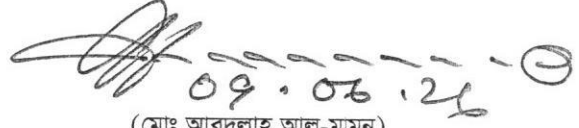 09.06.26
(মোঃ আবদুল্লাহ আল-মামুন)